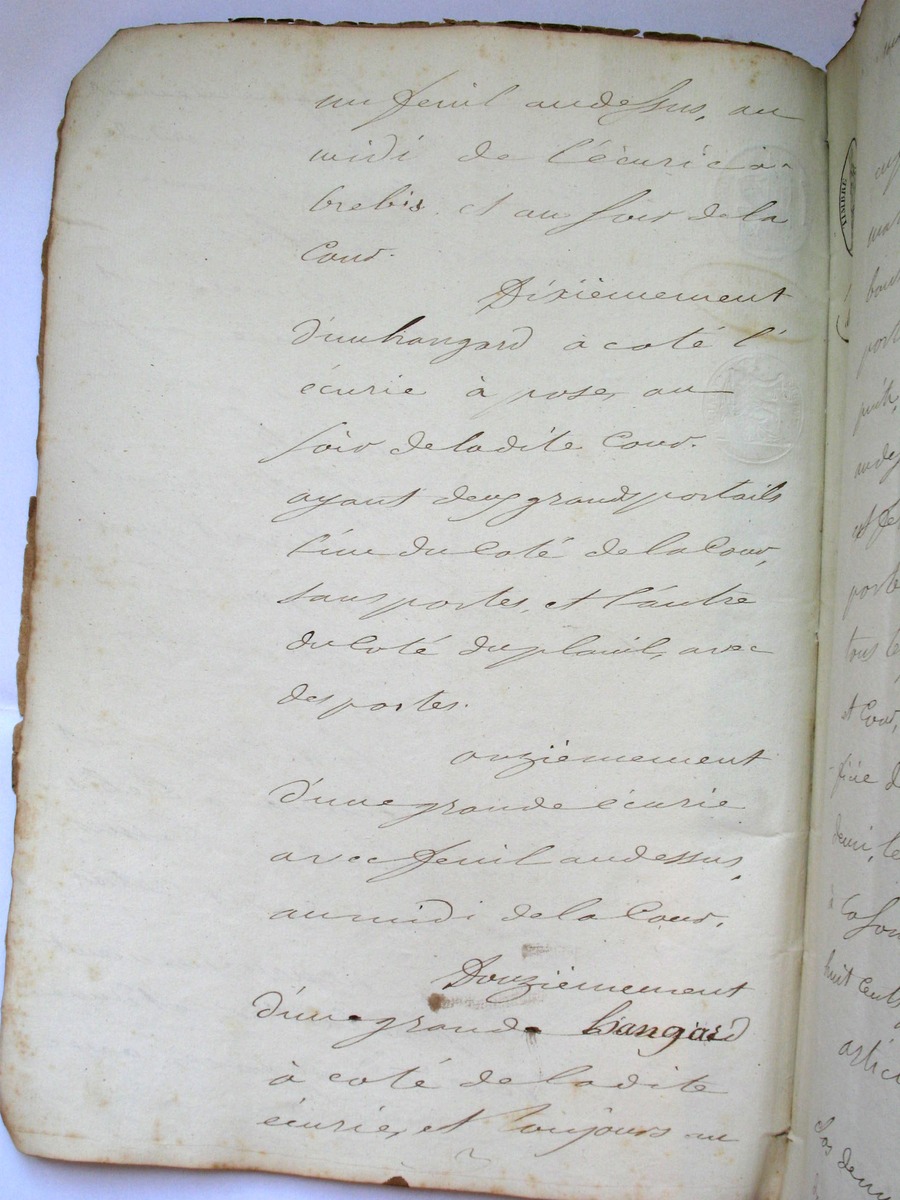 un feuil au dessus, au
midi de l'écurie à
brebis et au soir de la
Cour.
Dixièmement
d'un hangard à coté l'
écurie à poser, au
soir de ladite Cour.
ayant deux grands portails
l'un du Coté de la Cour,
sans portes, et l'autre
du Coté du plaid, avec
des portes.
onzièmement
d'une grande écurie
avec feuil au dessus,
au midi de la Cour.
Douzièmement
d'une grande hangard
à coté de ladite
écurie, et toujours au
TIMBRE
et Cour,
demi, le
huit Cents